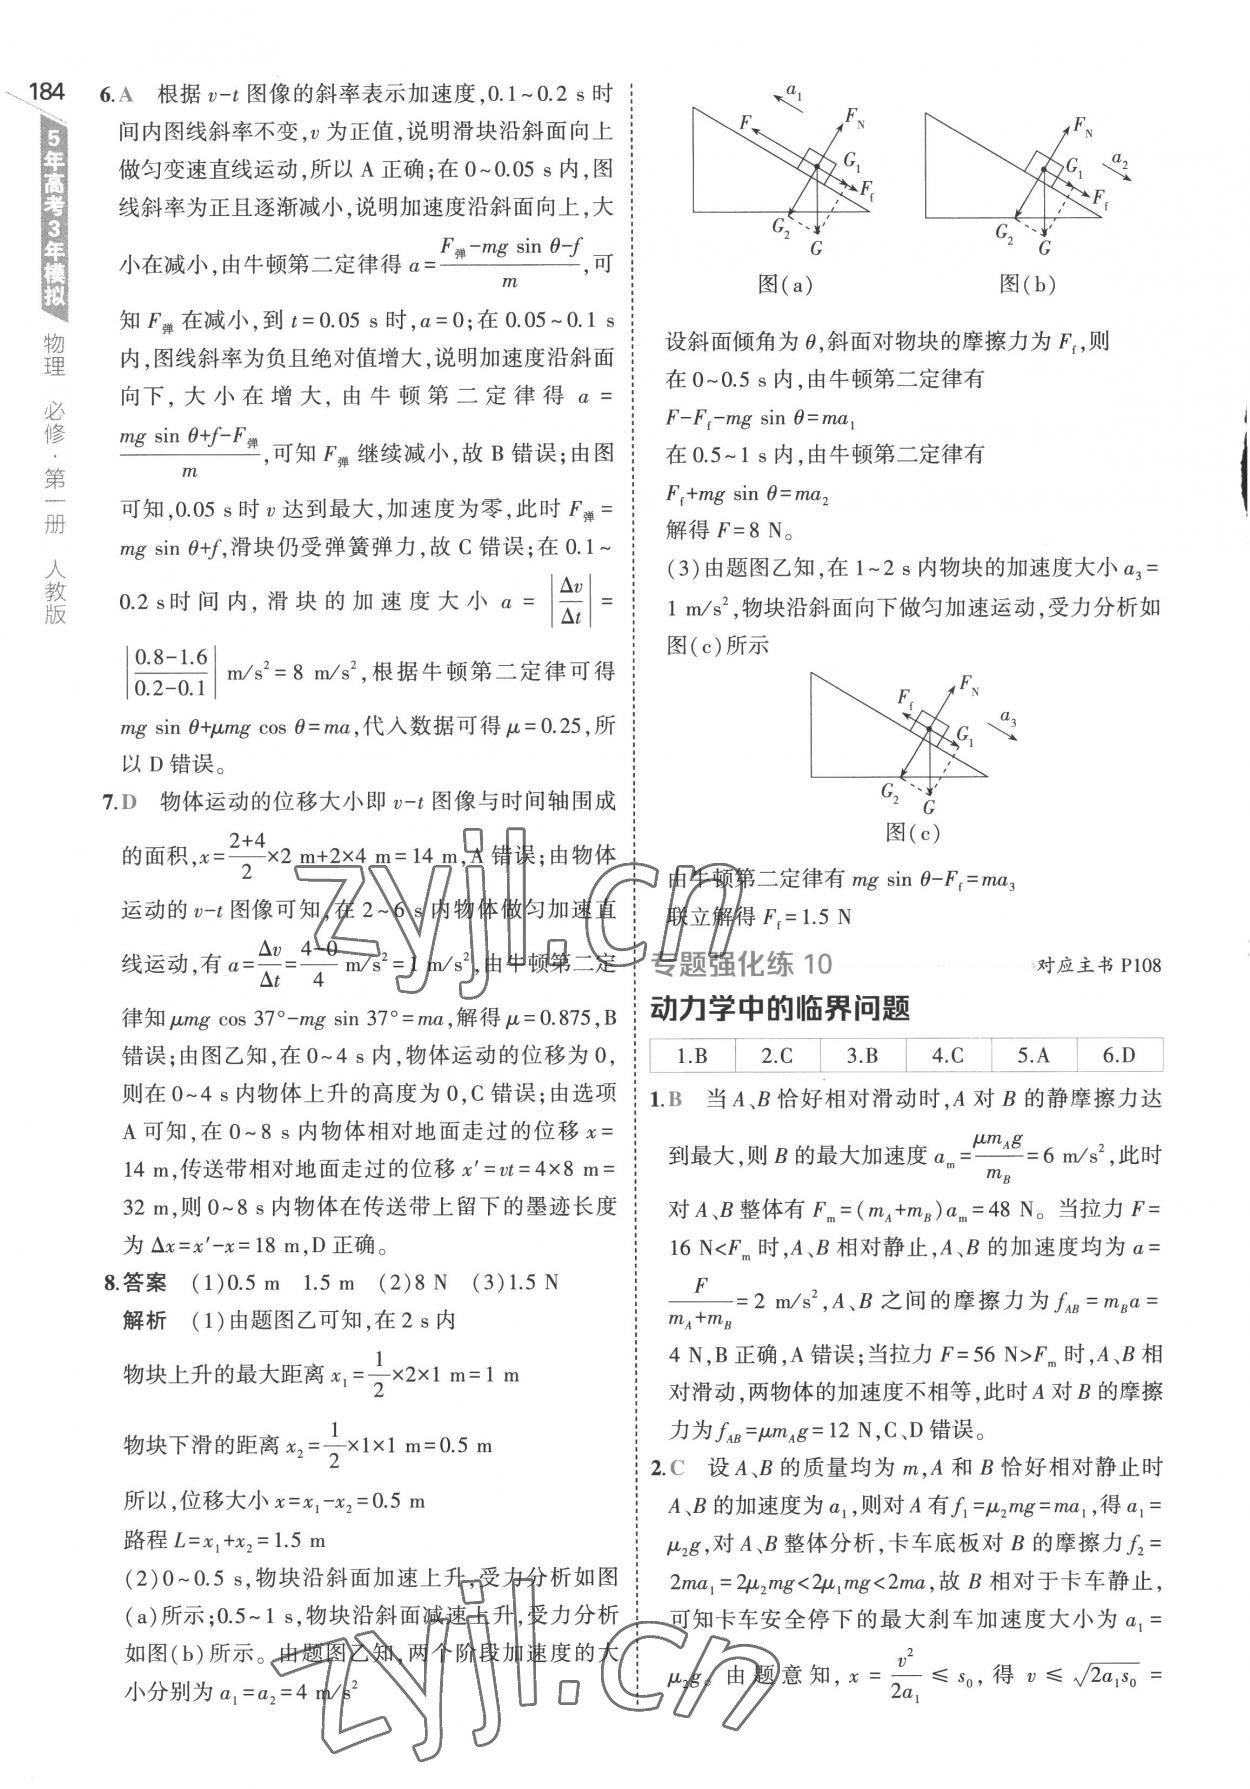 184
5年高考3年模拟
物理 必修·第一册 人教版
6.A 根据 v-t 图像的斜率表示加速度,0.1~0.2 s 时
间内图线斜率不变,v 为正值,说明滑块沿斜面向上
做匀变速直线运动,所以 A 正确;在 0~0.05 s 内,图
线斜率为正且逐渐减小,说明加速度沿斜面向上,大
小在减小,由牛顿第二定律得 a=(F弹-mg sin θ-f)/m,可
知 F弹 在减小,到 t=0.05 s 时,a=0;在 0.05~0.1 s
内,图线斜率为负且绝对值增大,说明加速度沿斜面
向下,大小在增大,由牛顿第二定律得 a=
(mg sin θ+f-F弹)/m,可知 F弹 继续减小,故 B 错误;由图
可知,0.05 s 时 v 达到最大,加速度为零,此时 F弹=
mg sin θ+f,滑块仍受弹簧弹力,故 C 错误;在 0.1~
0.2 s 时间内,滑块的加速度大小 a=|Δv/Δt|=
|(0.8-1.6)/(0.2-0.1)| m/s²=8 m/s²,根据牛顿第二定律可得
mg sin θ+μmg cos θ=ma,代入数据可得 μ=0.25,所
以 D 错误。
7.D 物体运动的位移大小即 v-t 图像与时间轴围成
的面积,x=(2+4)/2×2 m+2×4 m=14 m,A 错误;由物体
运动的 v-t 图像可知,在 2~6 s 内物体做匀加速直
线运动,有 a=Δv/Δt=(4-0)/4 m/s²=1 m/s²,由牛顿第二定
律知 μmg cos 37°-mg sin 37°=ma,解得 μ=0.875,B
错误;由图乙知,在 0~4 s 内,物体运动的位移为 0,
则在 0~4 s 内物体上升的高度为 0,C 错误;由选项
A 可知,在 0~8 s 内物体相对地面走过的位移 x=
14 m,传送带相对地面走过的位移 x′=vt=4×8 m=
32 m,则 0~8 s 内物体在传送带上留下的墨迹长度
为 Δx=x′-x=18 m,D 正确。
8.答案 (1)0.5 m 1.5 m (2)8 N (3)1.5 N
解析 (1)由题图乙可知,在 2 s 内
物块上升的最大距离 x₁=1/2×2×1 m=1 m
物块下滑的距离 x₂=1/2×1×1 m=0.5 m
所以,位移大小 x=x₁-x₂=0.5 m
路程 L=x₁+x₂=1.5 m
(2)0~0.5 s,物块沿斜面加速上升,受力分析如图
(a)所示;0.5~1 s,物块沿斜面减速上升,受力分析
如图(b)所示。由题图乙知,两个阶段加速度的大
小分别为 a₁=a₂=4 m/s²
a₁ F F_N G₁ F_f G₂ G
图(a)
F_N G₁ a₂ F_f G₂ G
图(b)
设斜面倾角为 θ,斜面对物块的摩擦力为 F_f,则
在 0~0.5 s 内,由牛顿第二定律有
F-F_f-mg sin θ=ma₁
在 0.5~1 s 内,由牛顿第二定律有
F_f+mg sin θ=ma₂
解得 F=8 N。
(3)由题图乙知,在 1~2 s 内物块的加速度大小 a₃=
1 m/s²,物块沿斜面向下做匀加速运动,受力分析如
图(c)所示
F_f F_N G₁ a₃ G₂ G
图(c)
由牛顿第二定律有 mg sin θ-F_f=ma₃
联立解得 F_f=1.5 N
专题强化练 10 对应主书 P108
动力学中的临界问题
1.B 2.C 3.B 4.C 5.A 6.D
1.B 当 A、B 恰好相对滑动时,A 对 B 的静摩擦力达
到最大,则 B 的最大加速度 a_m=μm_Ag/m_B=6 m/s²,此时
对 A、B 整体有 F_m=(m_A+m_B)a_m=48 N。当拉力 F=
16 N<F_m 时,A、B 相对静止,A、B 的加速度均为 a=
F/(m_A+m_B)=2 m/s²,A、B 之间的摩擦力为 f_AB=m_Ba=
4 N,B 正确,A 错误;当拉力 F=56 N>F_m 时,A、B 相
对滑动,两物体的加速度不相等,此时 A 对 B 的摩擦
力为 f_AB=μm_Ag=12 N,C、D 错误。
2.C 设 A、B 的质量均为 m,A 和 B 恰好相对静止时
A、B 的加速度为 a₁,则对 A 有 f₁=μ₂mg=ma₁,得 a₁=
μ₂g,对 A、B 整体分析,卡车底板对 B 的摩擦力 f₂=
2ma₁=2μ₂mg<2μ₁mg<2ma,故 B 相对于卡车静止,
可知卡车安全停下的最大刹车加速度大小为 a₁=
μ₂g。由题意知,x=v²/2a₁≤s₀,得 v≤√(2a₁s₀)=
zyjl.cn
zyjl.cn